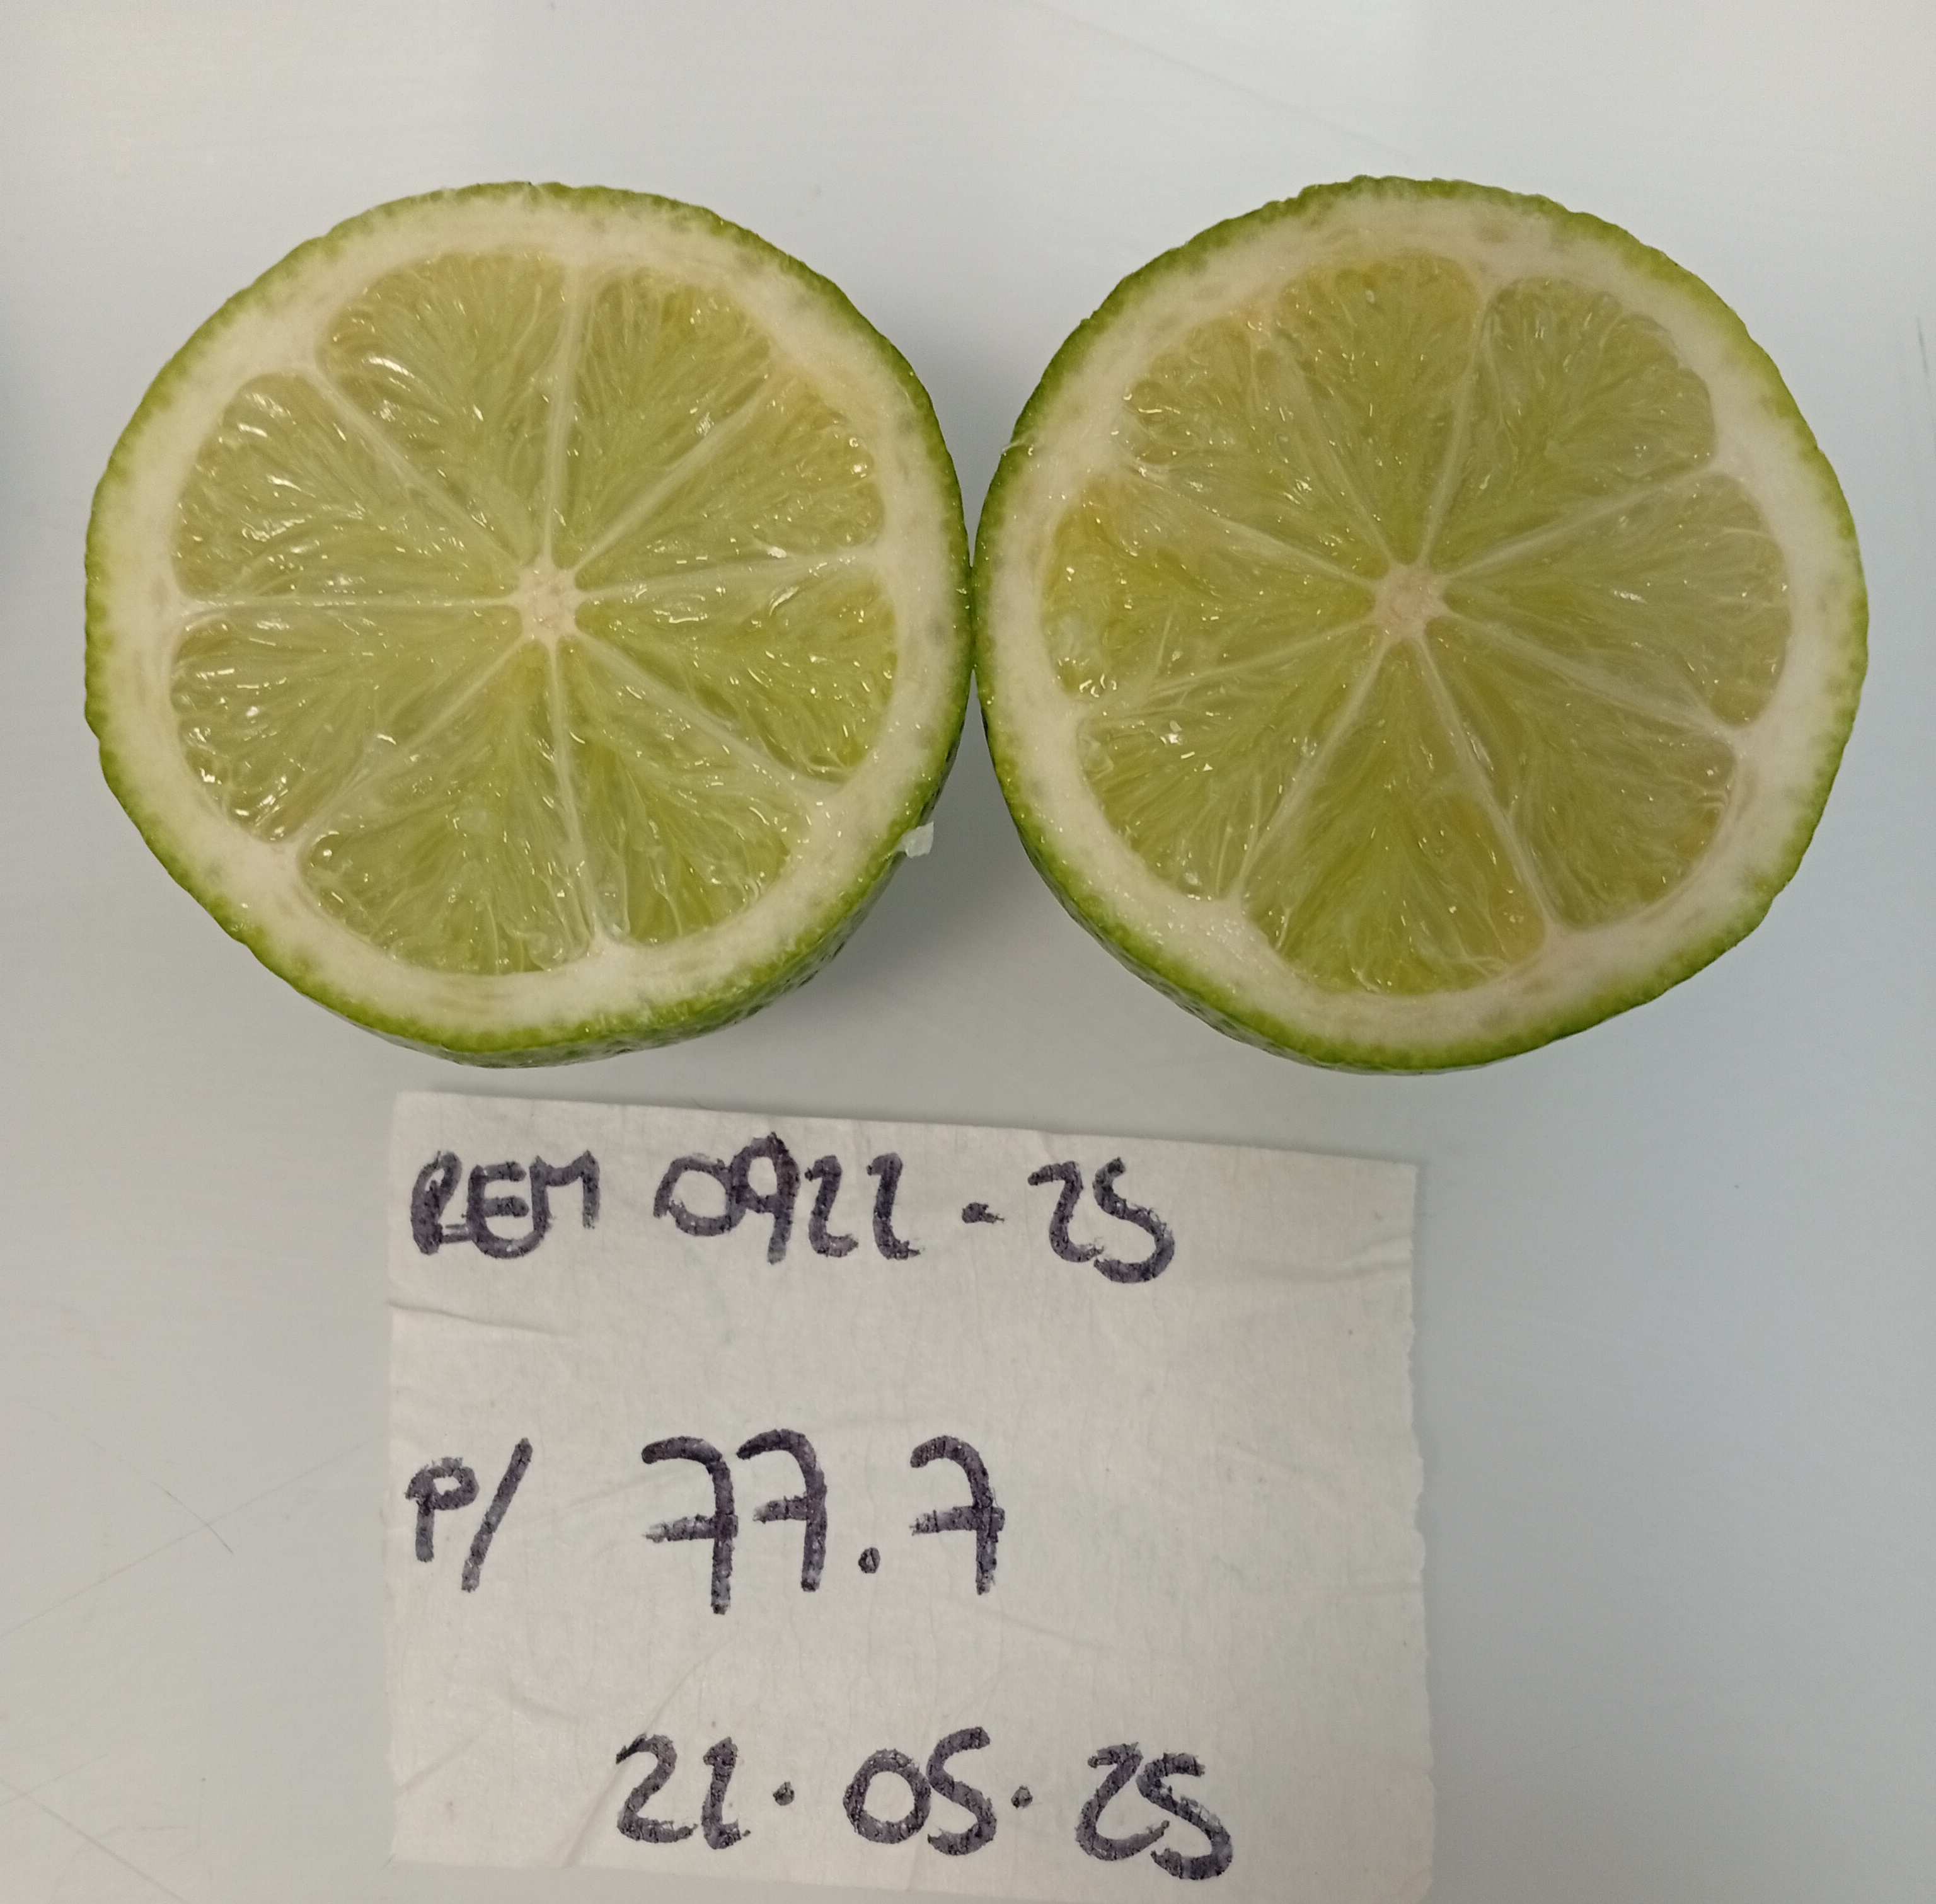 REM 0922-25
P/ 77.7
22.05.25